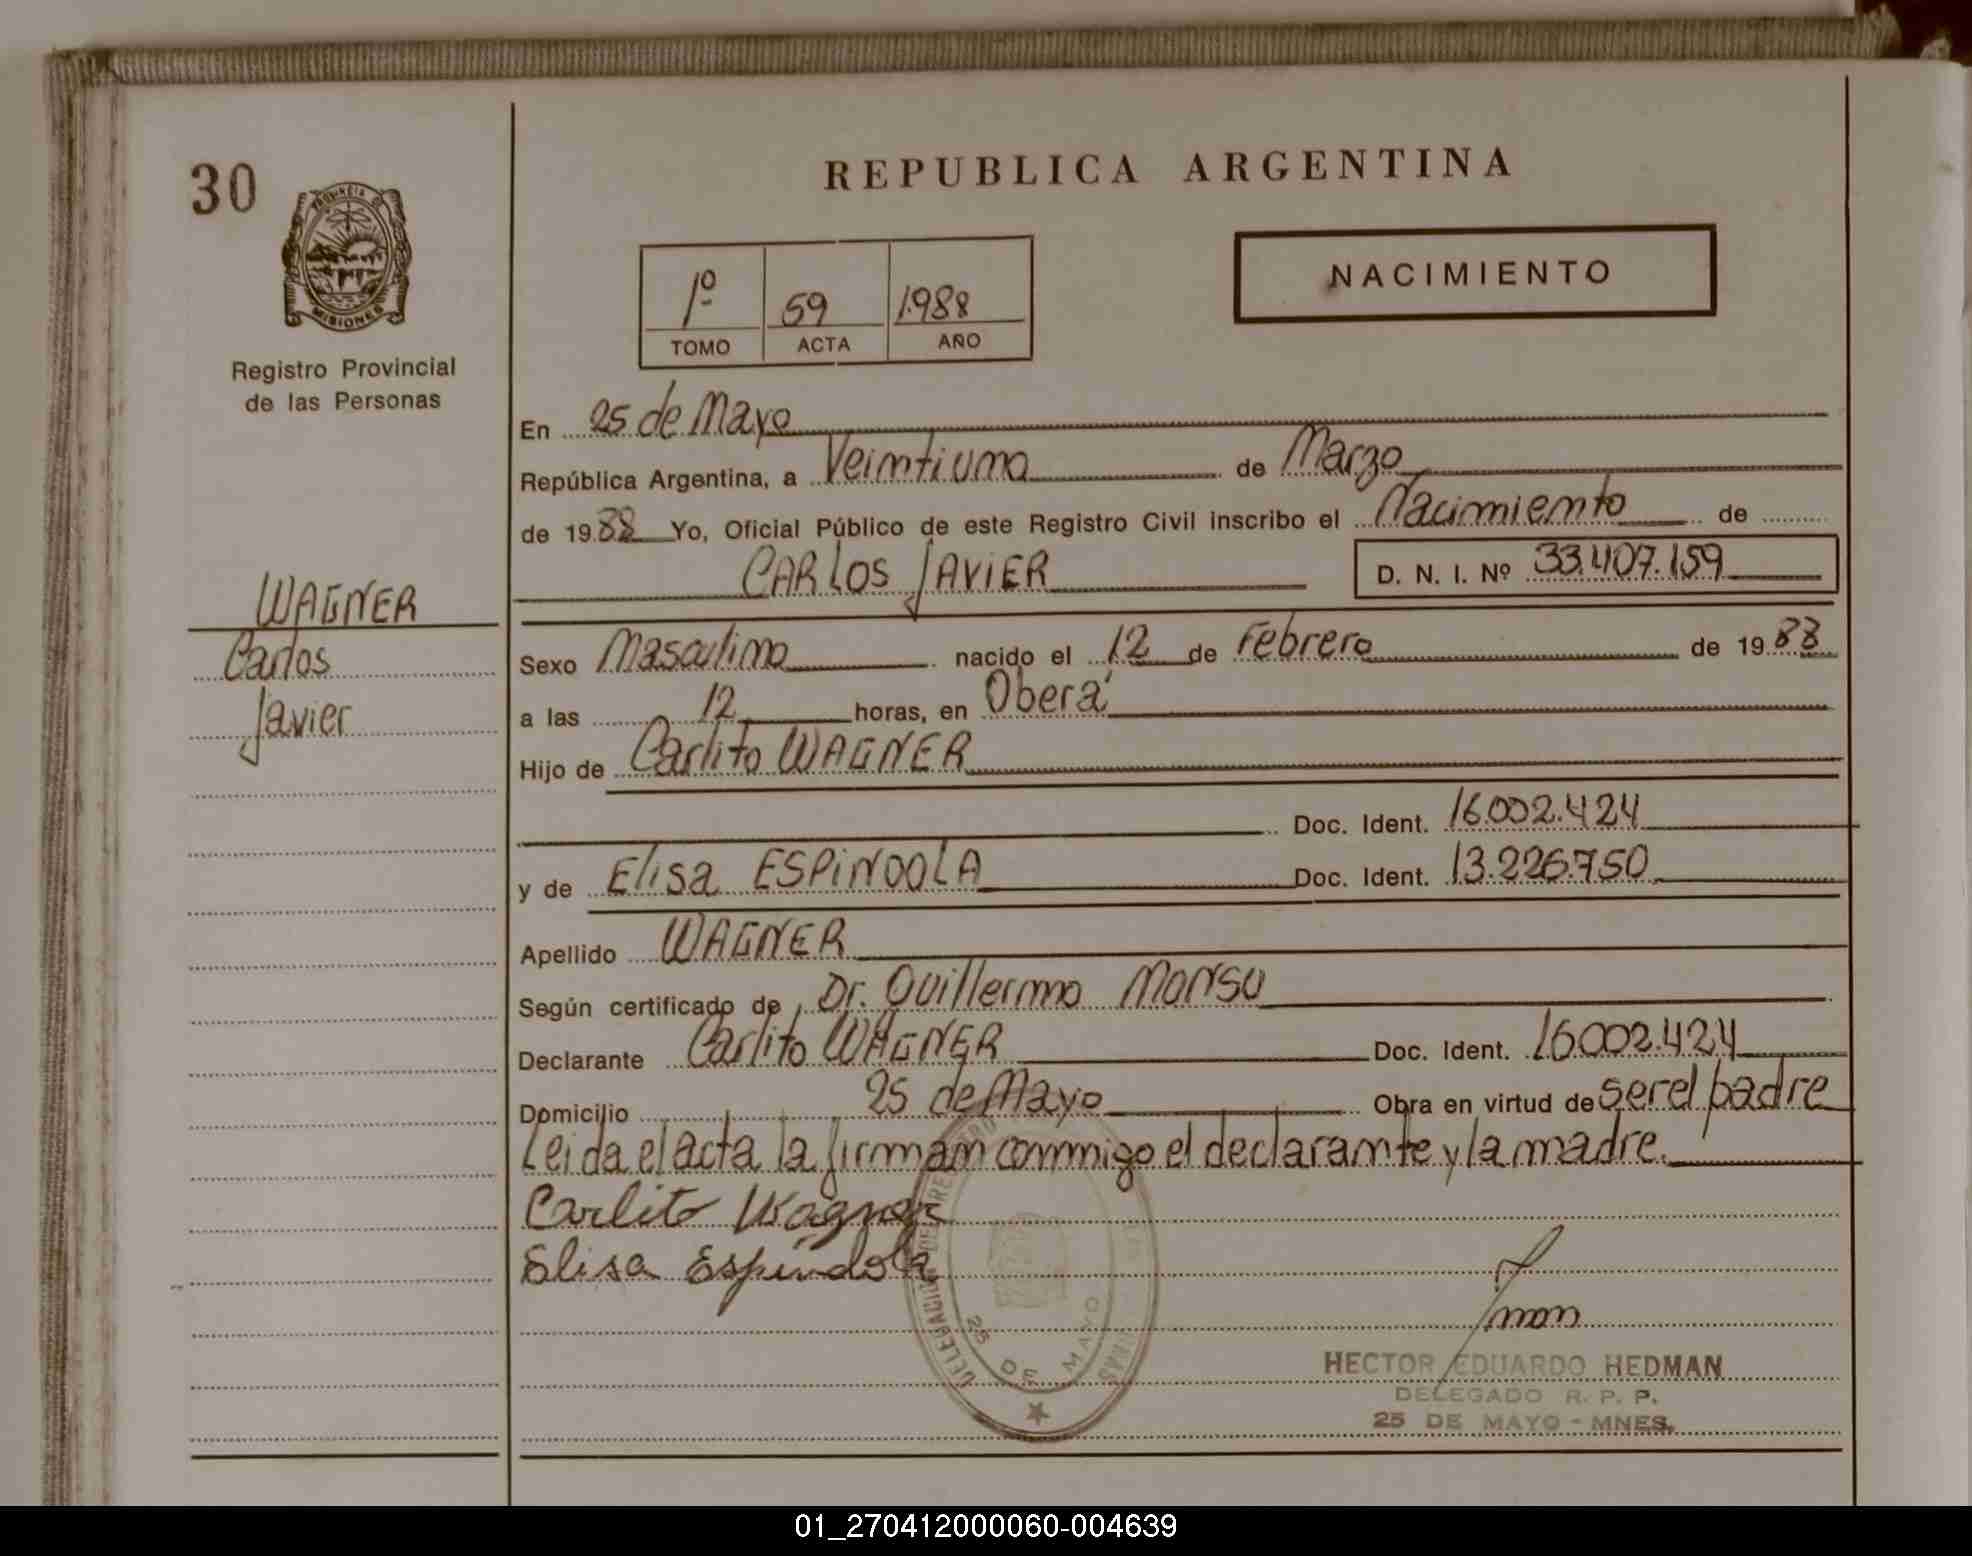 30
PROVINCIA D
MISIONES
Registro Provincial
de las Personas
WAGNER
Carlos
Javier
REPUBLICA ARGENTINA
1º 59 1.988
TOMO ACTA AÑO
NACIMIENTO
En 25 de Mayo
República Argentina, a Veintiuno de Marzo
de 1988 Yo, Oficial Público de este Registro Civil inscribo el Nacimiento de
CARLOS JAVIER D. N. I. Nº 33.407.159
Sexo Masculino nacido el 12 de Febrero de 1988
a las 12 horas, en Oberá
Hijo de Carlito WAGNER
Doc. Ident. 16.002.424
y de Elisa ESPINDOLA Doc. Ident. 13.226.750
Apellido WAGNER
Según certificado de Dr. Guillermo MONSU
Declarante Carlito WAGNER Doc. Ident. 16.002.424
Domicilio 25 de Mayo Obra en virtud de ser el padre
Leida el acta la firman conmigo el declarante y la madre.
Carlito Wagner
Elisa Espindola
25 DE MAYO
HECTOR EDUARDO HEDMAN
DELEGADO R. P. P.
25 DE MAYO - MNES.
01_270412000060-004639